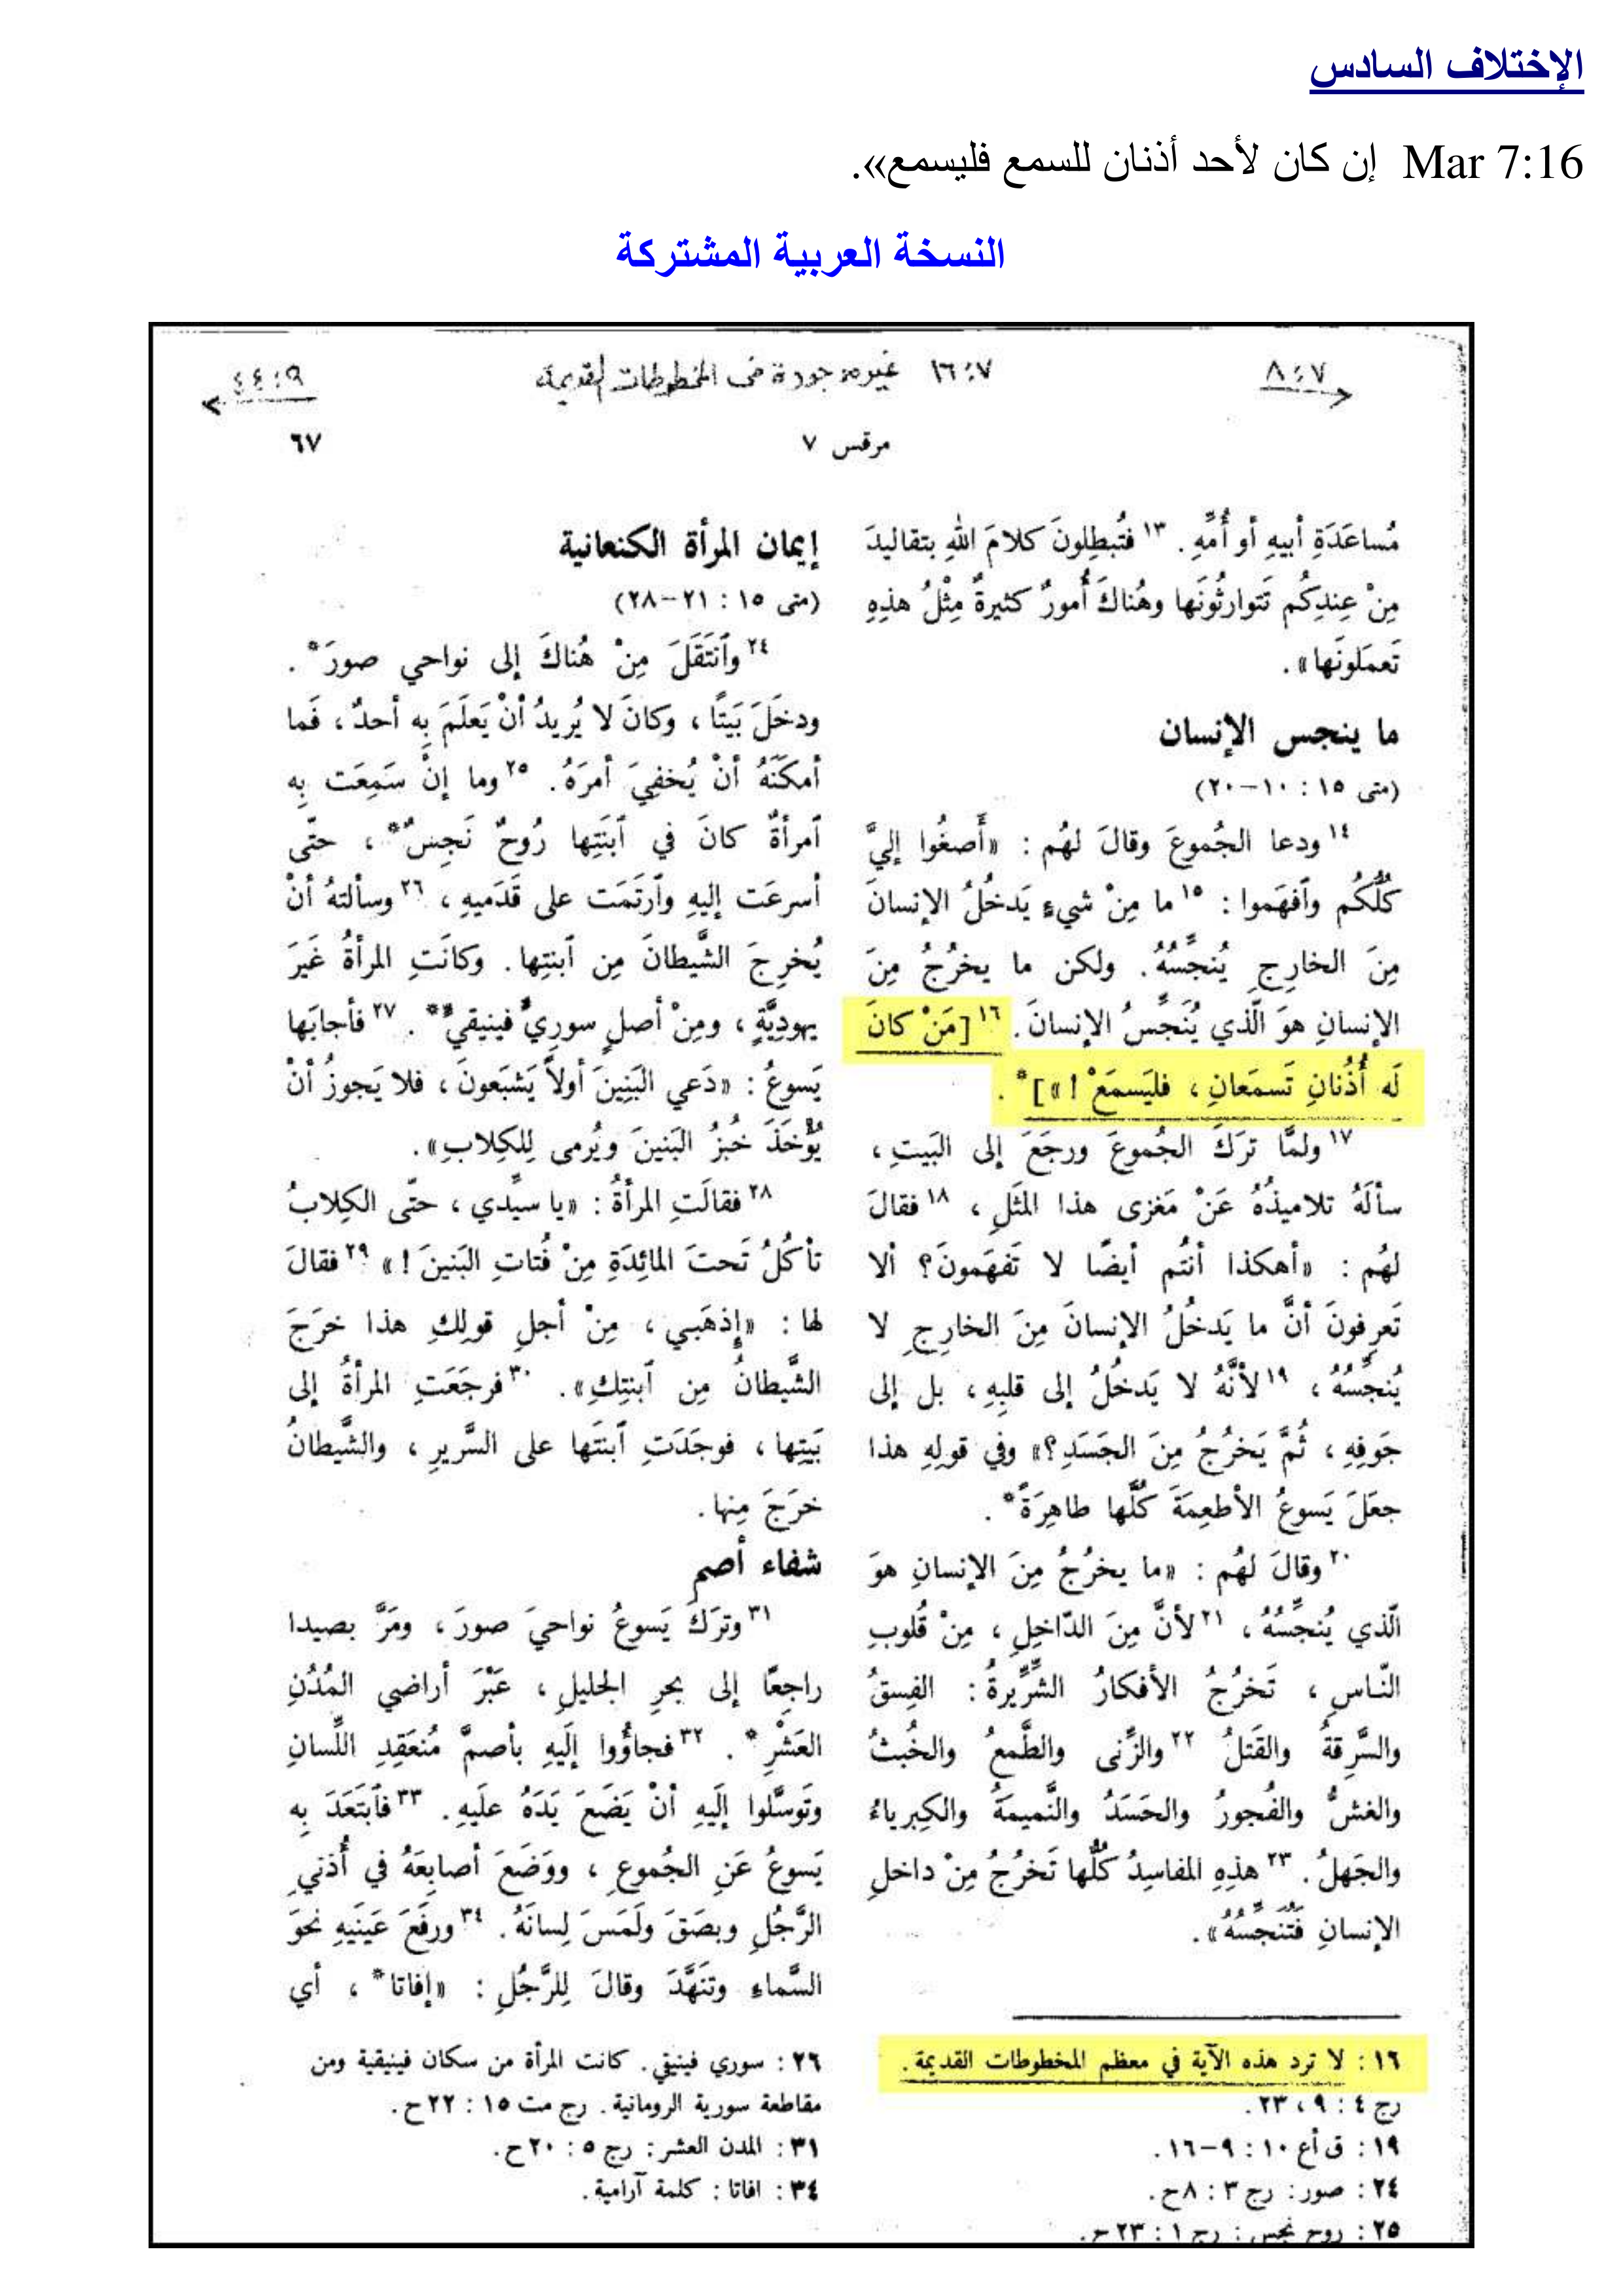 الإختلاف السادس
Mar 7:16 إن كان لأحد أذنان للسمع فليسمع».
النسخة العربية المشتركة
٨:٧
١٦:٧ غير موجودة فى المخطوطات القديمة
٤٤:٩
مرقس ٧
٦٧
مُساعَدَةِ أبيهِ أو أُمِّهِ. ١٣ فتُبطِلونَ كلامَ اللهِ بتقاليدَ
مِنْ عِندِكُم تَتوارثُونَها وهُناكَ أُمورٌ كثيرةٌ مِثْلُ هذِهِ
تَعمَلونَها».
ما ينجس الإنسان
(متى ١٥ : ١٠-٢٠)
١٤ ودعا الجُموعَ وقالَ لهُم : «أَصغُوا إليَّ
كُلُّكُم وٱفهَموا : ١٥ ما مِنْ شيءٍ يَدخُلُ الإنسانَ
مِنَ الخارِجِ يُنجِّسُهُ. ولكن ما يخرُجُ مِنَ
الإنسانِ هوَ الّذي يُنَجِّسُ الإنسانَ. ١٦ [مَنْ كانَ
لَه أُذُنانِ تَسمَعانِ ، فليَسمَعْ !»]* .
١٧ ولمَّا ترَكَ الجُموعَ ورجَعَ إلى البَيتِ ،
سألَهُ تلاميذُهُ عَنْ مَغزى هذا المَثَلِ ، ١٨ فقالَ
لهُم : «أهكذا أنتُم أيضًا لا تَفهَمونَ؟ ألا
تَعرِفونَ أنَّ ما يَدخُلُ الإنسانَ مِنَ الخارِجِ لا
يُنجِّسُهُ ، ١٩ لأنَّهُ لا يَدخُلُ إلى قلبِهِ ، بل إلى
جَوفِهِ ، ثُمَّ يَخرُجُ مِنَ الجَسَدِ؟» وفي قولِهِ هذا
جعَلَ يَسوعُ الأطعِمَةَ كُلَّها طاهِرَةً* .
٢٠ وقالَ لهُم : «ما يخرُجُ مِنَ الإنسانِ هوَ
الّذي يُنجِّسُهُ ، ٢١ لأنَّ مِنَ الدّاخِلِ ، مِنْ قُلوبِ
النّاسِ ، تَخرُجُ الأفكارُ الشِّرِّيرةُ : الفِسقُ
والسَّرِقةُ والقَتلُ ٢٢ والزِّنى والطَّمعُ والخُبثُ
والغشُّ والفُجورُ والحَسَدُ والنَّميمَةُ والكِبرياءُ
والجَهلُ. ٢٣ هذِهِ المفاسِدُ كُلُّها تَخرُجُ مِنْ داخلِ
الإنسانِ فَتُنَجِّسُهُ».
١٦ : لا ترد هذه الآية في معظم المخطوطات القديمة.
رج ٤ : ٩ ، ٢٣.
١٩ : ق أع ١٠ : ٩-١٦.
٢٤ : صور : رج ٣ : ٨ح.
٢٥ : روح نجس : رج ١ : ٢٣ح.
إيمان المرأة الكنعانية
(متى ١٥ : ٢١-٢٨)
٢٤ وٱنتَقَلَ مِنْ هُناكَ إلى نواحي صورَ* .
ودخَلَ بَيتًا ، وكانَ لا يُريدُ أنْ يَعلَمَ بِه أحدٌ ، فَما
أمكَنَهُ أنْ يُخفِيَ أمرَهُ. ٢٥ وما إنْ سَمِعَت بِه
ٱمرأةٌ كانَ في ٱبنَتِها رُوحٌ نَجِسٌ* ، حتّى
أسرعَت إليهِ وٱرتَمَت على قَدَميهِ ، ٢٦ وسألتهُ أنْ
يُخرِجَ الشَّيطانَ مِن ٱبنتِها. وكانَتِ المرأةُ غَيرَ
يهودِيَّةٍ ، ومِنْ أصلٍ سورِيٍّ فينيقيٍّ* . ٢٧ فأجابَها
يَسوعُ : «دَعي البَنِينَ أولاً يَشبَعونَ ، فلا يَجوزُ أنْ
يُؤْخَذَ خُبزُ البَنينَ ويُرمى لِلكِلابِ».
٢٨ فقالَتِ المرأةُ : «يا سيِّدي ، حتّى الكِلابُ
تأكُلُ تَحتَ المائِدَةِ مِنْ فُتاتِ البَنينَ !» ٢٩ فقالَ
لها : «إذهَبي ، مِنْ أجلِ قولِكِ هذا خرَجَ
الشَّيطانُ مِن ٱبنتِكِ». ٣٠ فرجَعَتِ المرأةُ إلى
بَيتِها ، فوجَدَتِ ٱبنتَها على السَّريرِ ، والشَّيطانُ
خرَجَ مِنها.
شفاء أصم
٣١ وتَرَكَ يَسوعُ نواحيَ صورَ ، ومَرَّ بصيدا
راجِعًا إلى بحرِ الجليلِ ، عَبْرَ أراضي المُدُنِ
العَشْرِ* . ٣٢ فجاؤُوا إلَيهِ بأصمَّ مُنعَقِدِ اللِّسانِ
وتَوسَّلوا إلَيهِ أنْ يَضَعَ يَدَهُ علَيهِ. ٣٣ فٱبتَعَدَ بِه
يَسوعُ عَنِ الجُموعِ ، ووَضَعَ أصابِعَهُ في أُذنيِ
الرَّجُلِ وبصَقَ ولَمَسَ لِسانَهُ. ٣٤ ورفَعَ عَينَيهِ نحوَ
السَّماءِ وتَنَهَّدَ وقالَ لِلرَّجُلِ : «إفاتا* ، أي
٢٦ : سوري فينيقي. كانت المرأة من سكان فينيقية ومن
مقاطعة سورية الرومانية. رج مت ١٥ : ٢٢ح.
٣١ : المدن العشر : رج ٥ : ٢٠ح.
٣٤ : افاتا : كلمة آرامية.